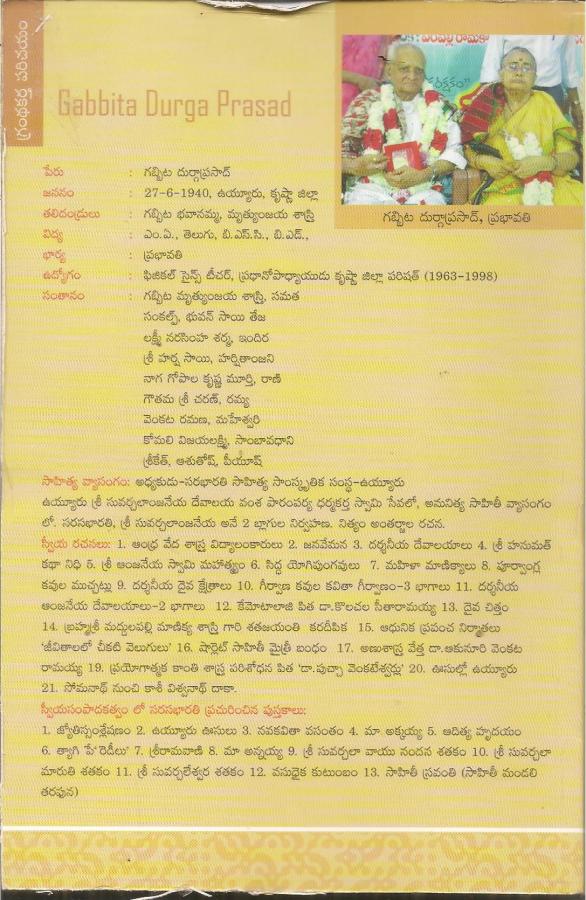 గ్రంథకర్త పరిచయం
Gabbita Durga Prasad
గబ్బిట దుర్గాప్రసాద్, ప్రభావతి
పేరు : గబ్బిట దుర్గాప్రసాద్
జననం : 27-6-1940, ఉయ్యూరు, కృష్ణా జిల్లా
తలిదండ్రులు : గబ్బిట భవానమ్మ, మృత్యుంజయ శాస్త్రి
విద్య : ఎం.ఏ., తెలుగు, బి.ఎస్.సి., బి.ఎడ్.,
భార్య : ప్రభావతి
ఉద్యోగం : ఫిజికల్ సైన్స్ టీచర్, ప్రధానోపాధ్యాయుడు కృష్ణా జిల్లా పరిషత్ (1963-1998)
సంతానం : గబ్బిట మృత్యుంజయ శాస్త్రి, సమత
సంకల్ప్, భువన్ సాయి తేజ
లక్ష్మీ నరసింహ శర్మ, ఇందిర
శ్రీ హర్ష సాయి, హర్షితాంజని
నాగ గోపాల కృష్ణ మూర్తి, రాణి
గౌతమ శ్రీ చరణ్, రమ్య
వెంకట రమణ, మహేశ్వరి
కోమలి విజయలక్ష్మి, సాంబావధాని
శ్రీకేత్, ఆశుతోష్, పీయూష్
సాహిత్య వ్యాసంగం: అధ్యకుడు-సరభారతి సాహిత్య సాంస్కృతిక సంస్థ-ఉయ్యూరు
ఉయ్యూరు శ్రీ సువర్చలాంజనేయ దేవాలయ వంశ పారంపర్య ధర్మకర్త స్వామి సేవలో, అమనిత్య సాహితీ వ్యాసంగం
లో. సరసభారతి, శ్రీ సువర్చలాంజనేయ అనే 2 బ్లాగుల నిర్వహణ. నిత్యం అంతర్జాల రచన.
స్వీయ రచనలు: 1. ఆంధ్ర వేద శాస్త్ర విద్యాలంకారులు 2. జనవేమన 3. దర్శనీయ దేవాలయాలు 4. శ్రీ హనుమత్
కథా నిధి 5. శ్రీ ఆంజనేయ స్వామి మహాత్మ్యం 6. సిద్ధ యోగిపుంగవులు 7. మహిళా మాణిక్యాలు 8. పూర్వాంగ్ల
కవుల ముచ్చట్లు 9. దర్శనీయ దైవ క్షేత్రాలు 10. గీర్వాణ కవుల కవితా గీర్వాణం-3 భాగాలు 11. దర్శనీయ
ఆంజనేయ దేవాలయాలు-2 భాగాలు 12. కేమోటాలాజి పిత డా.కొలచల సీతారామయ్య 13. దైవ చిత్తం
14. బ్రహ్మశ్రీ మద్దులపల్లి మాణిక్య శాస్త్రి గారి శతజయంతి కరదీపిక 15. ఆధునిక ప్రపంచ నిర్మాతలు
'జీవితాలలో చీకటి వెలుగులు' 16. షార్లెట్ సాహితీ మైత్రీ బంధం 17. అణుశాస్త్ర వేత్త డా.ఆకునూరి వెంకట
రామయ్య 19. ప్రయోగాత్మక కాంతి శాస్త్ర పరిశోధన పిత 'డా.పుచ్చా వెంకటేశ్వర్లు' 20. ఊసుల్లో ఉయ్యూరు
21. సోమనాథ్ నుంచి కాశీ విశ్వనాథ్ దాకా.
స్వీయసంపాదకత్వం లో సరసభారతి ప్రచురించిన పుస్తకాలు:
1. జ్యోతిస్సంశ్లేషణం 2. ఉయ్యూరు ఊసులు 3. నవకవితా వసంతం 4. మా అక్కయ్య 5. ఆదిత్య హృదయం
6. త్యాగి పే' రెడీలు' 7. శ్రీరామవాణి 8. మా అన్నయ్య 9. శ్రీ సువర్చలా వాయు నందన శతకం 10. శ్రీ సువర్చలా
మారుతి శతకం 11. శ్రీ సువర్చలేశ్వర శతకం 12. వసుధైక కుటుంబం 13. సాహితీ స్రవంతి (సాహితీ మండలి
తరఫున)